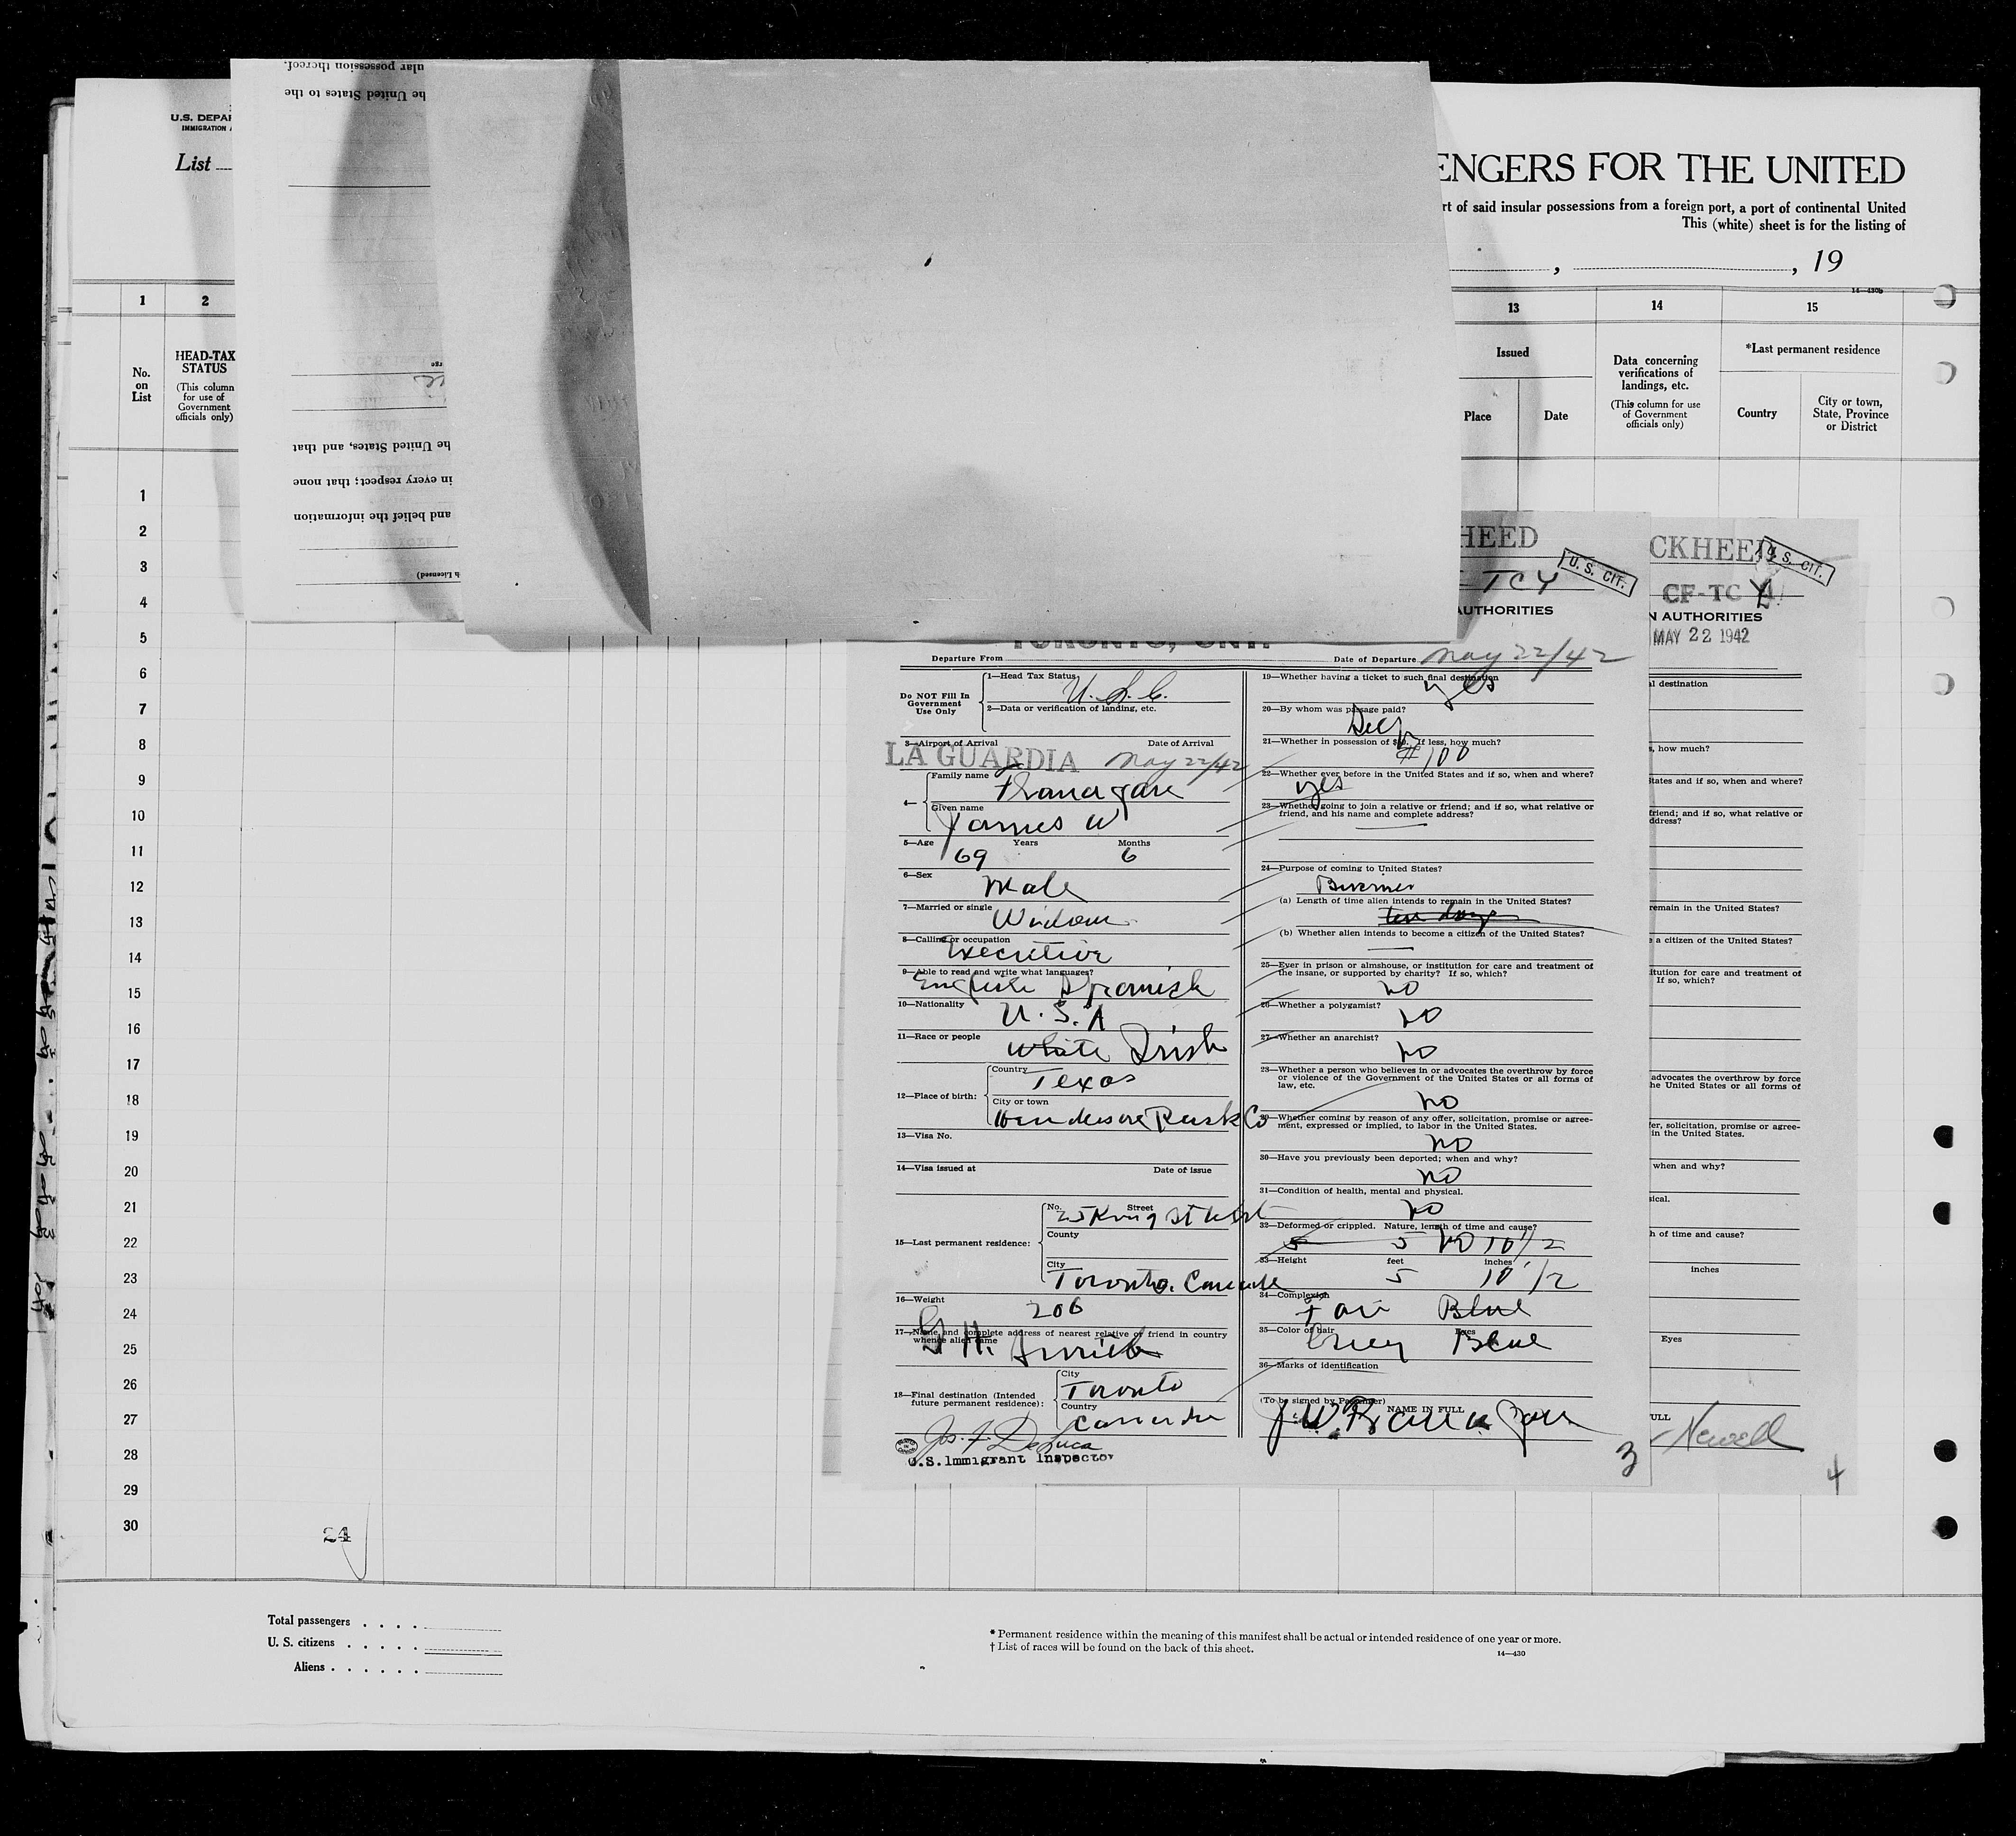 ular possession thereof.
he United States to the
he United States, and that
in every respect; that none
and belief the information
U.S. DEPAR
IMMIGRATION A
List
ENGERS FOR THE UNITED
rt of said insular possessions from a foreign port, a port of continental United
This (white) sheet is for the listing of
, , 19
14—430b
1 2 13 14 15
No. on List
HEAD-TAX STATUS
(This column for use of Government officials only)
Issued
Place Date
Data concerning verifications of landings, etc.
(This column for use of Government officials only)
*Last permanent residence
Country
City or town, State, Province or District
1
2
3
4
5
6
7
8
9
10
11
12
13
14
15
16
17
18
19
20
21
22
23
24
25
26
27
28
29
30
24
HEED
U. S. CIT.
TCY
AUTHORITIES
TORONTO, ONT.
Departure From Date of Departure May 22/42
Do NOT Fill In Government Use Only
1—Head Tax Status U.S.C.
2—Data or verification of landing, etc.
3—Airport of Arrival Date of Arrival
LA GUARDIA May 22/42
4— Family name
Given name James W
5—Age 69 Years Months 6
6—Sex Male
7—Married or single Widow
8—Calling or occupation Executive
9—Able to read and write what languages?
English Spanish
10—Nationality U.S.A
11—Race or people White Irish
12—Place of birth: Country Texas
City or town Henderson Rusk Co
13—Visa No.
14—Visa issued at Date of issue
15—Last permanent residence: No. Street 25 King St West
County
City Toronto. Canada
16—Weight 206
17—Name and complete address of nearest relative or friend in country whence alien came
G H.
18—Final destination (Intended future permanent residence): City Toronto
Country Canada
Jos. F. DeLuca
U.S. Immigrant Inspector
19—Whether having a ticket to such final destination yes
20—By whom was passage paid?
Self
21—Whether in possession of $50. If less, how much?
$100
22—Whether ever before in the United States and if so, when and where?
yes
23—Whether going to join a relative or friend; and if so, what relative or friend, and his name and complete address?
24—Purpose of coming to United States?
Business
(a) Length of time alien intends to remain in the United States?
ten days
(b) Whether alien intends to become a citizen of the United States?
25—Ever in prison or almshouse, or institution for care and treatment of the insane, or supported by charity? If so, which?
no
26—Whether a polygamist?
no
27—Whether an anarchist?
no
28—Whether a person who believes in or advocates the overthrow by force or violence of the Government of the United States or all forms of law, etc.
no
29—Whether coming by reason of any offer, solicitation, promise or agreement, expressed or implied, to labor in the United States.
no
30—Have you previously been deported; when and why?
no
31—Condition of health, mental and physical.
no
32—Deformed or crippled. Nature, length of time and cause?
5 5 no 10 1/2
33—Height feet inches
5 10 1/2
34—Complexion
Fair Blue
35—Color of hair Eyes
Grey Blue
36—Marks of identification
(To be signed by Passenger)
NAME IN FULL
3
CKHEED
U. S. CIT.
CF-TC Y
N AUTHORITIES
MAY 22 1942
l destination
, how much?
tates and if so, when and where?
friend; and if so, what relative or
ddress?
remain in the United States?
a citizen of the United States?
itution for care and treatment of
If so, which?
advocates the overthrow by force
he United States or all forms of
fer, solicitation, promise or agree-
in the United States.
when and why?
sical.
h of time and cause?
inches
Eyes
ULL
Newell
4
Total passengers . . . .
U. S. citizens . . . . .
Aliens . . . . . .
* Permanent residence within the meaning of this manifest shall be actual or intended residence of one year or more.
† List of races will be found on the back of this sheet.
14—430